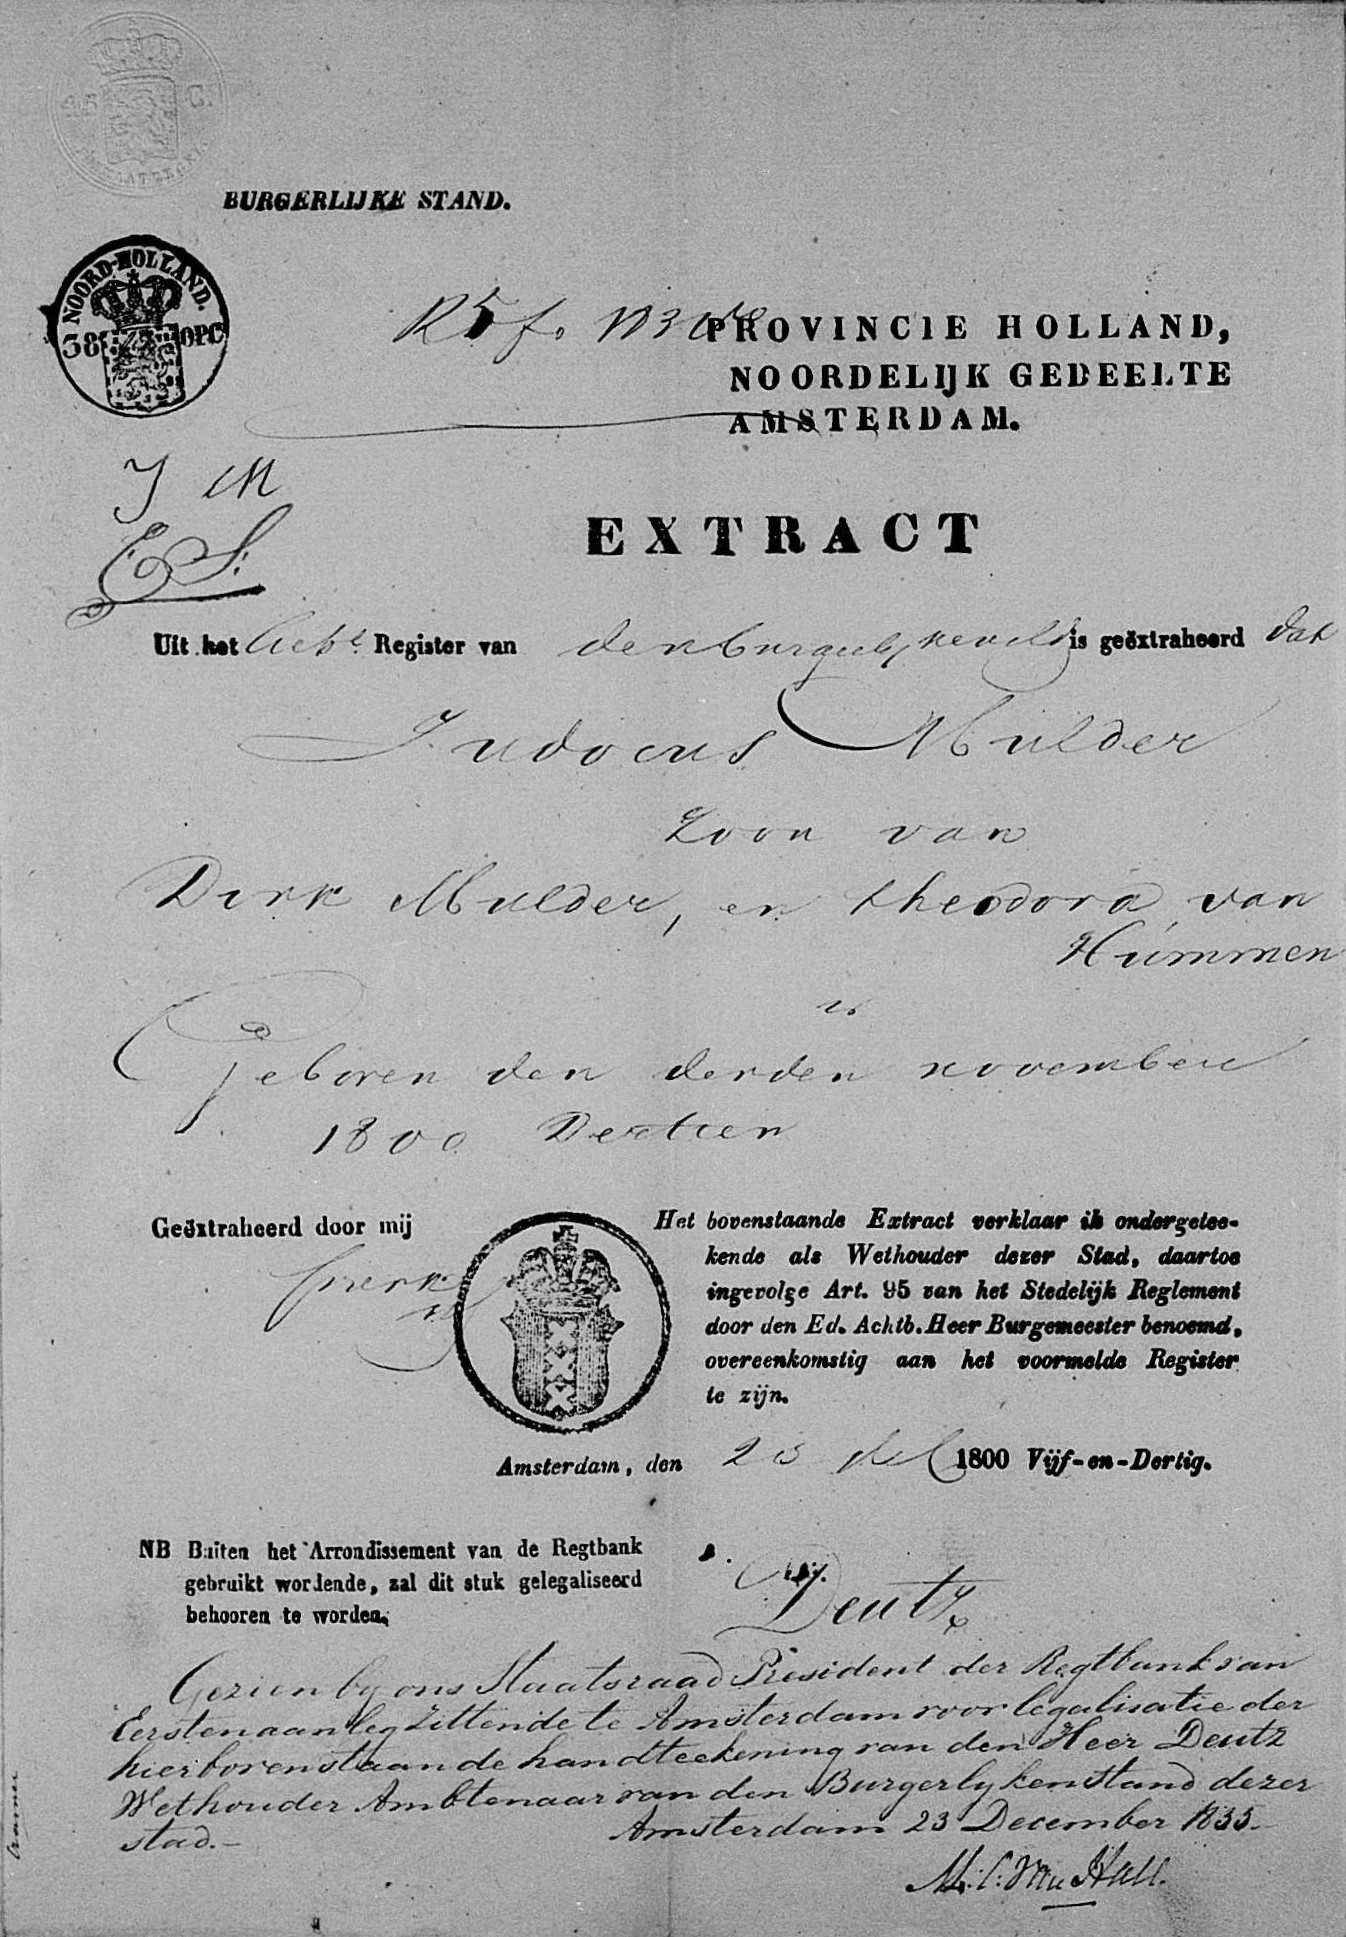 BURGERLIJKE STAND.
NOORD-HOLLAND.
38 OPC
R 5 f.
PROVINCIE HOLLAND,
NOORDELIJK GEDEELTE
AMSTERDAM.
J M
E S:
EXTRACT
Uit het Register van den is geëxtraheerd dat
Judocus Mulder
Zoon van
Dirk Mulder, en theodora van
Hummen
is
Geboren den derden november
1800 Dertien
Geëxtraheerd door mij
Het bovenstaande Extract verklaar ik ondergetee-
kende als Wethouder dezer Stad, daartoe
ingevolge Art. 95 van het Stedelijk Reglement
door den Ed. Achtb. Heer Burgemeester benoemd,
overeenkomstig aan het voormelde Register
te zijn.
Amsterdam, den 23 1800 Vijf-en-Dertig.
NB Buiten het Arrondissement van de Regtbank
gebruikt wordende, zal dit stuk gelegaliseerd
behooren te worden.
Deutz
Gezien by ons Staatsraad President der Regtbank van
Eersten aanleg zittende te Amsterdam voor legalisatie der
hierbovenstaande handteekening van den Heer Deutz
Wethouder Ambtenaar van den Burgerlyken Stand dezer
stad.- Amsterdam 23 December 1835.
M. C. Van Hall.